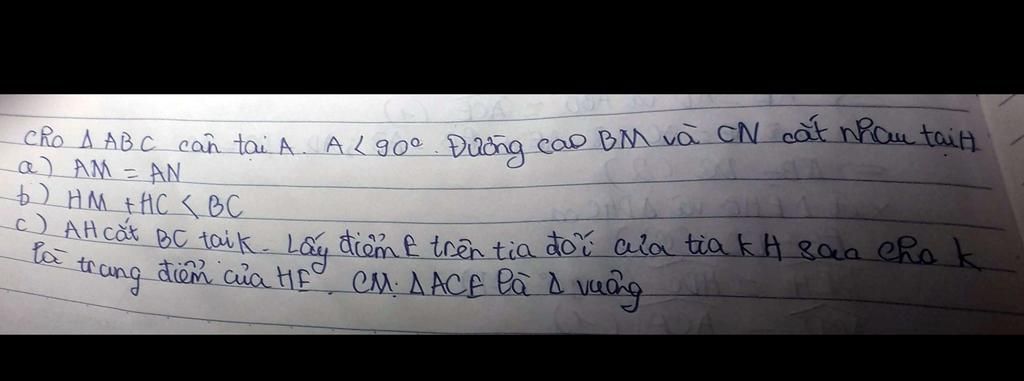 cho Δ ABC cân tại A. A < 90°. Đường cao BM và CN cắt nhau tại H
a) AM = AN
b) HM + HC < BC
c) AH cắt BC tai K. Lấy điểm E trên tia đối của tia KH sao cho K
là trang điểm của HE. CM: ΔACE là Δ vuông